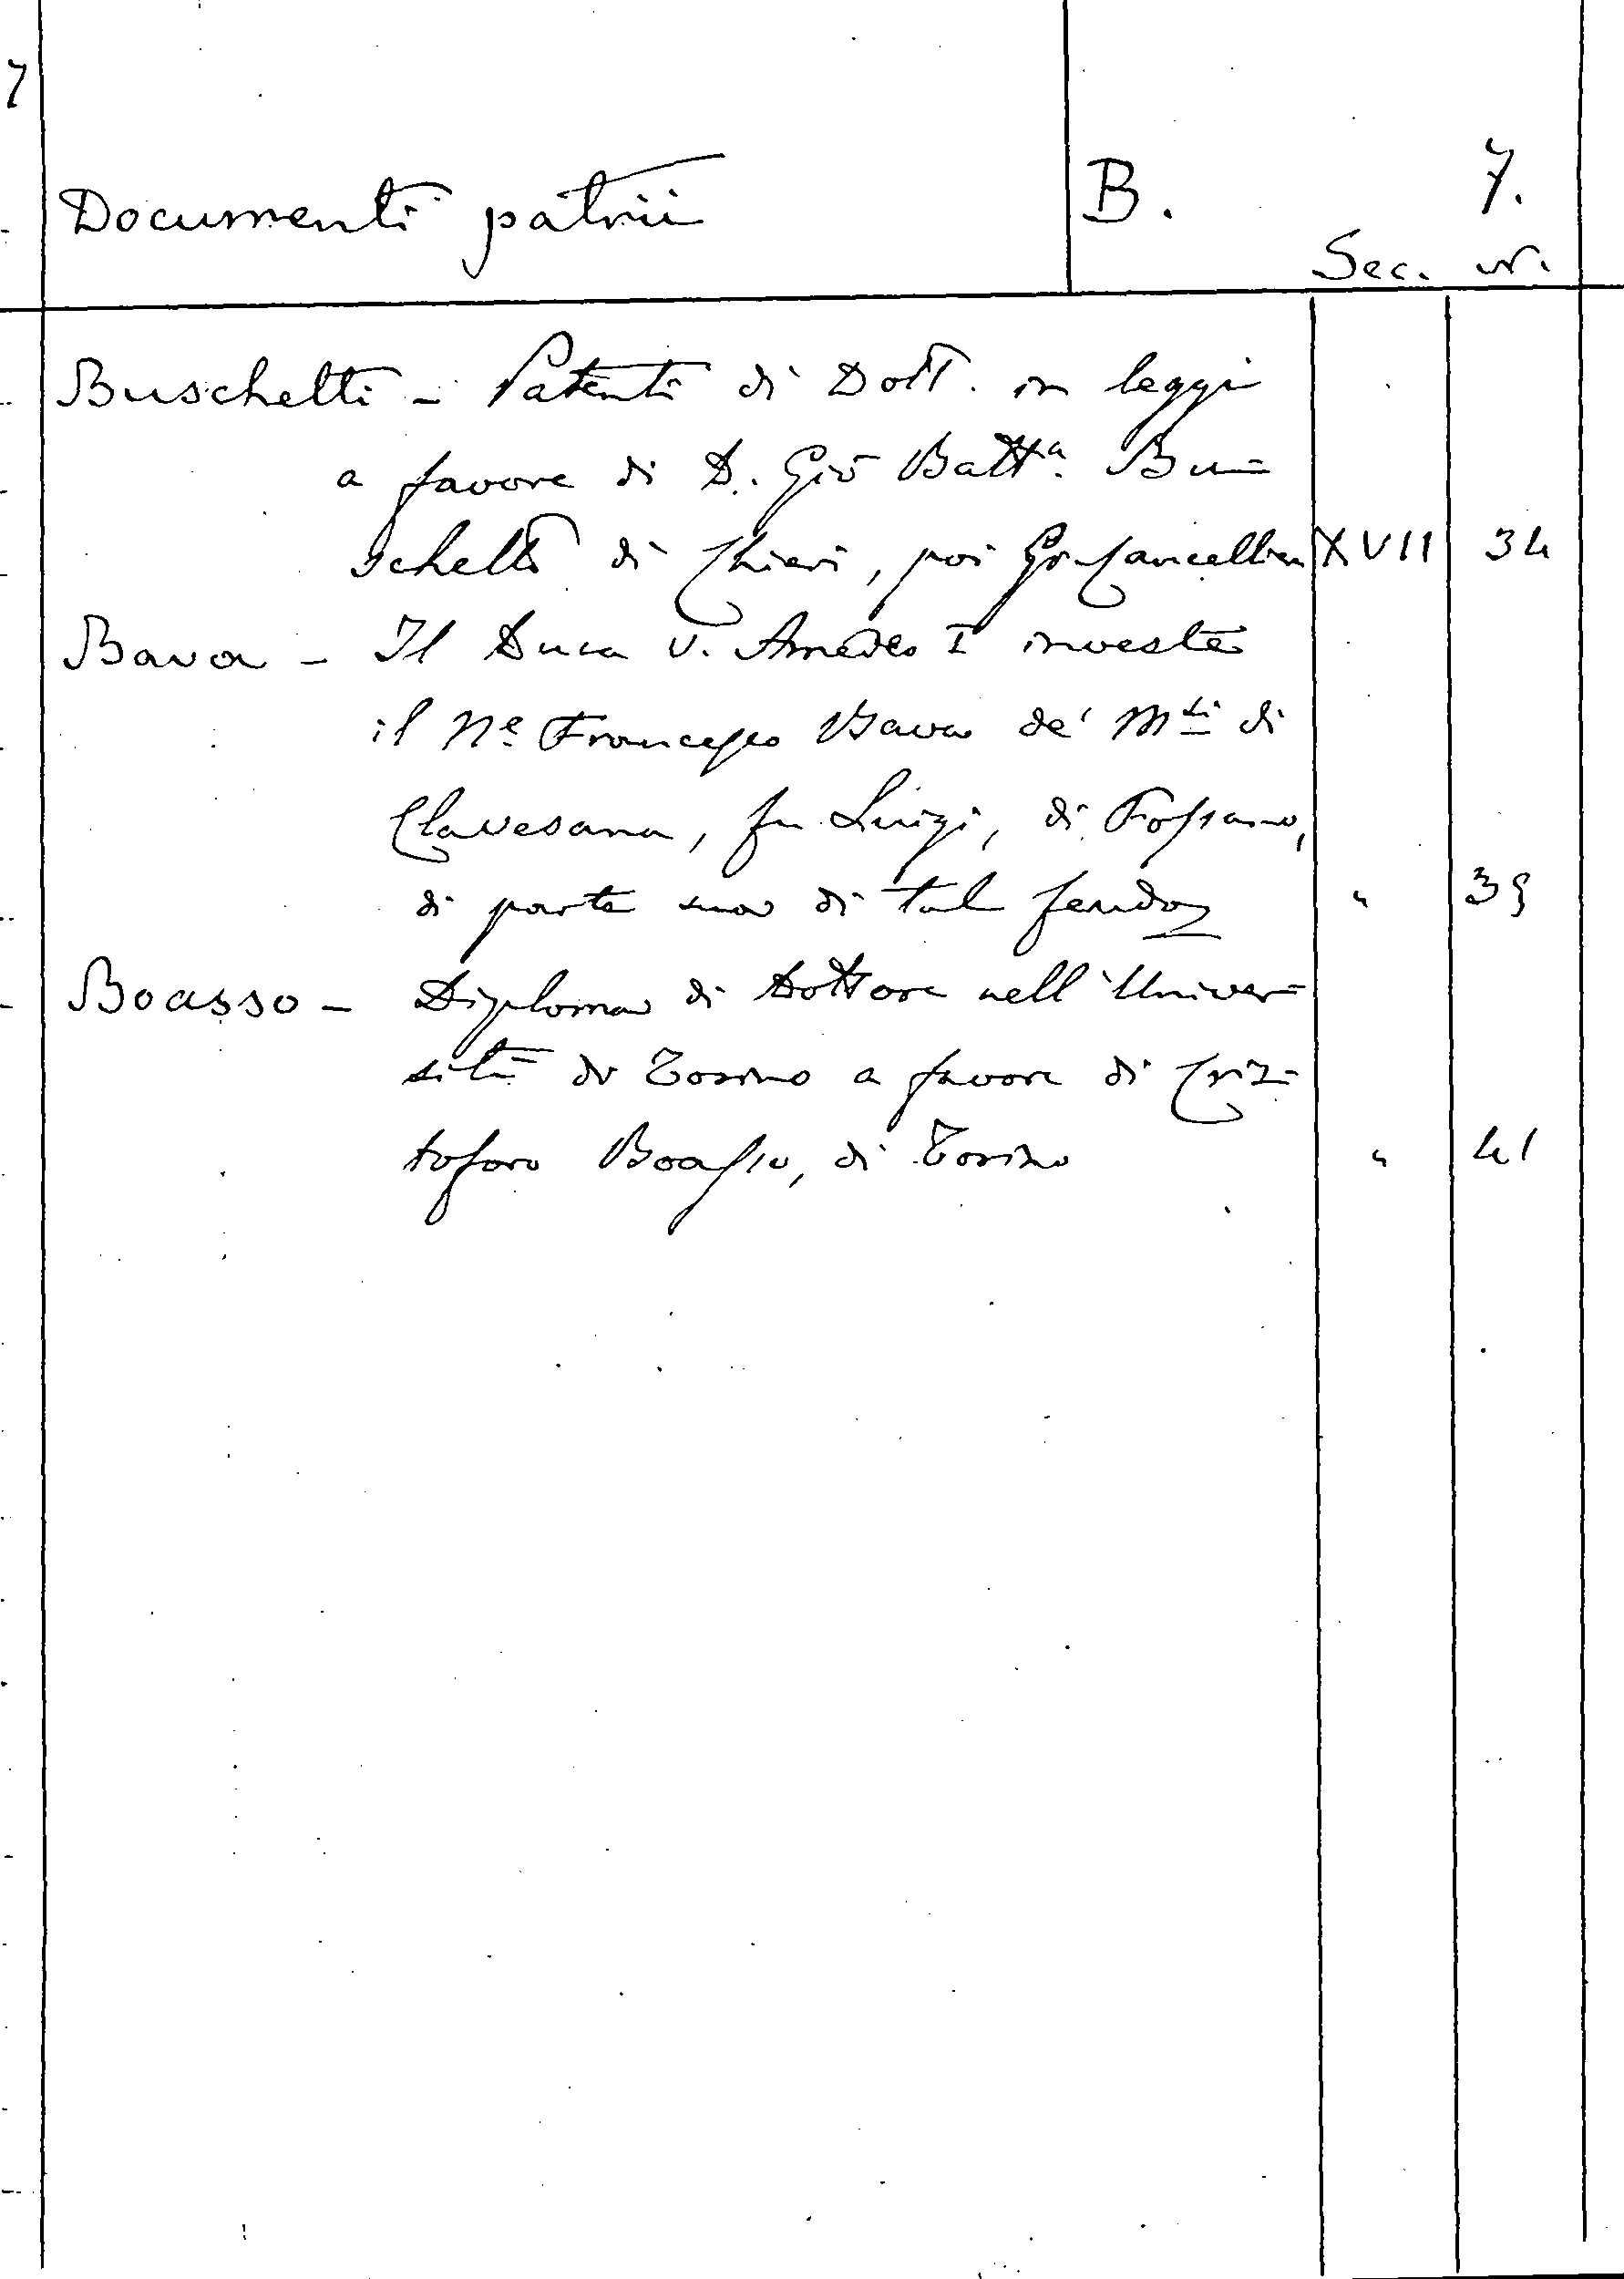 7
Documenti patrii B. 7.
Sec. nr.
Buschetti - Patenti di Dott. in leggi
a favore di D. Giō Battª. Bu=
schetti di Chieri, poi Gr. Cancelliere XVII 34
Bava - Il Duca V. Amedeo I investe
il Nᵉ Francesco Bava de' Mˢⁱ di
Clavesana, fu Luigi, di Fossano,
di parte sua di tal feudo " 35
Boasso - Diploma di Dottore nell'Univer=
sità di Torino a favore di Cris=
toforo Boasso, di Torino " 41